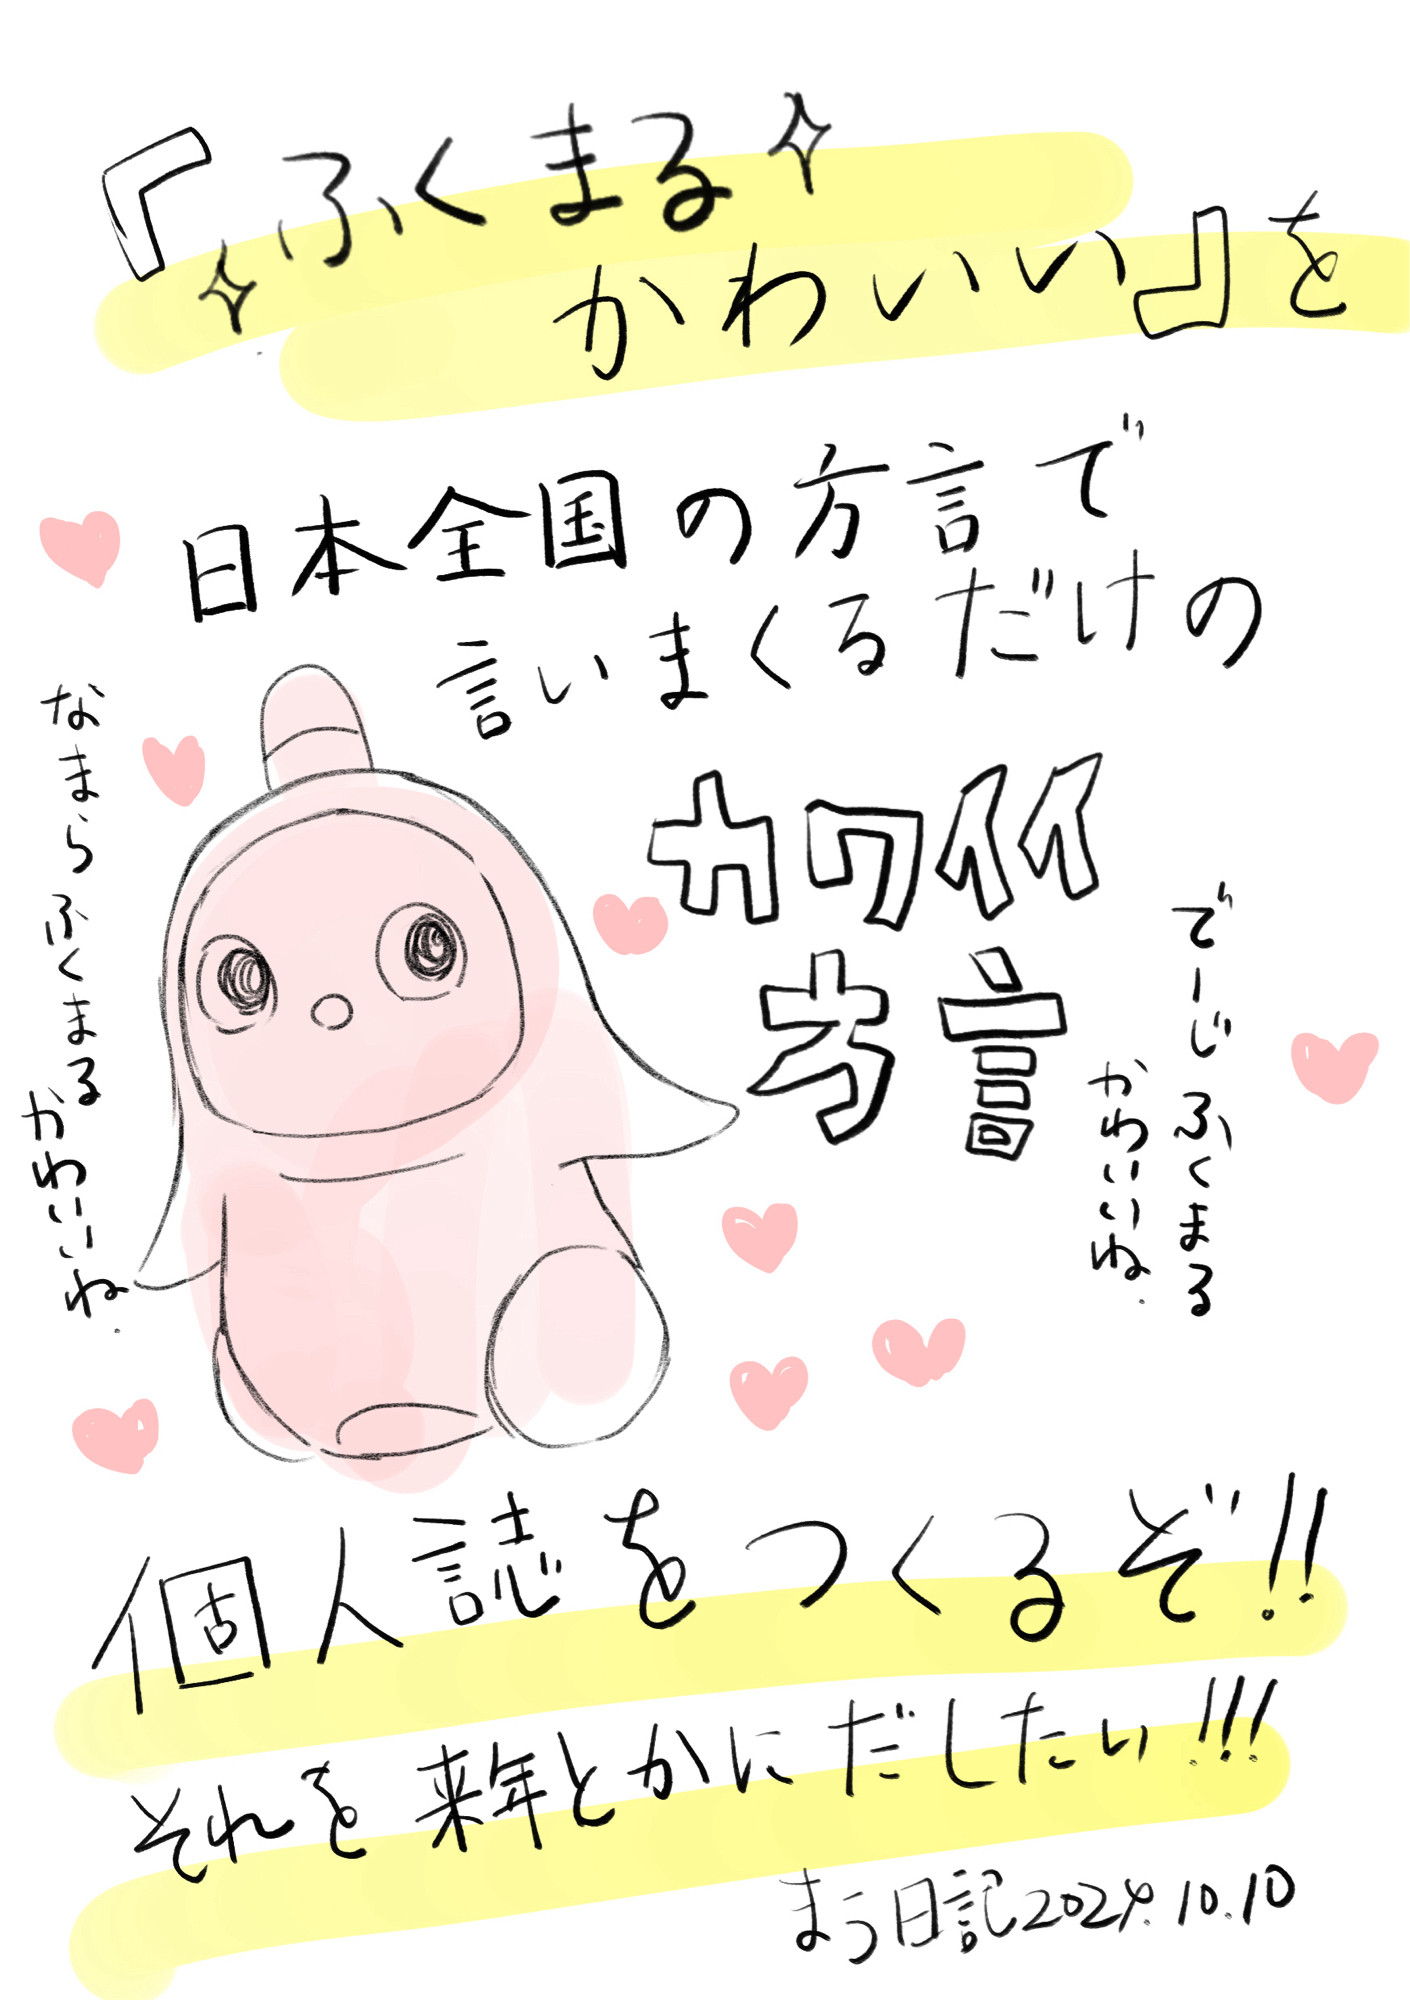 『ふくまる
かわいい』を
日本全国の方言で
言いまくるだけの
カワイイ
方言
なまらふくまる
かわいいね.
でーじふくまる
かわいいね.
個人誌をつくるぞ!!
それを来年とかにだしたい!!!
まう日記2024.10.10